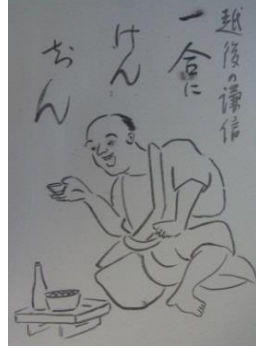 越後の謙信
一合に
けん
ちん